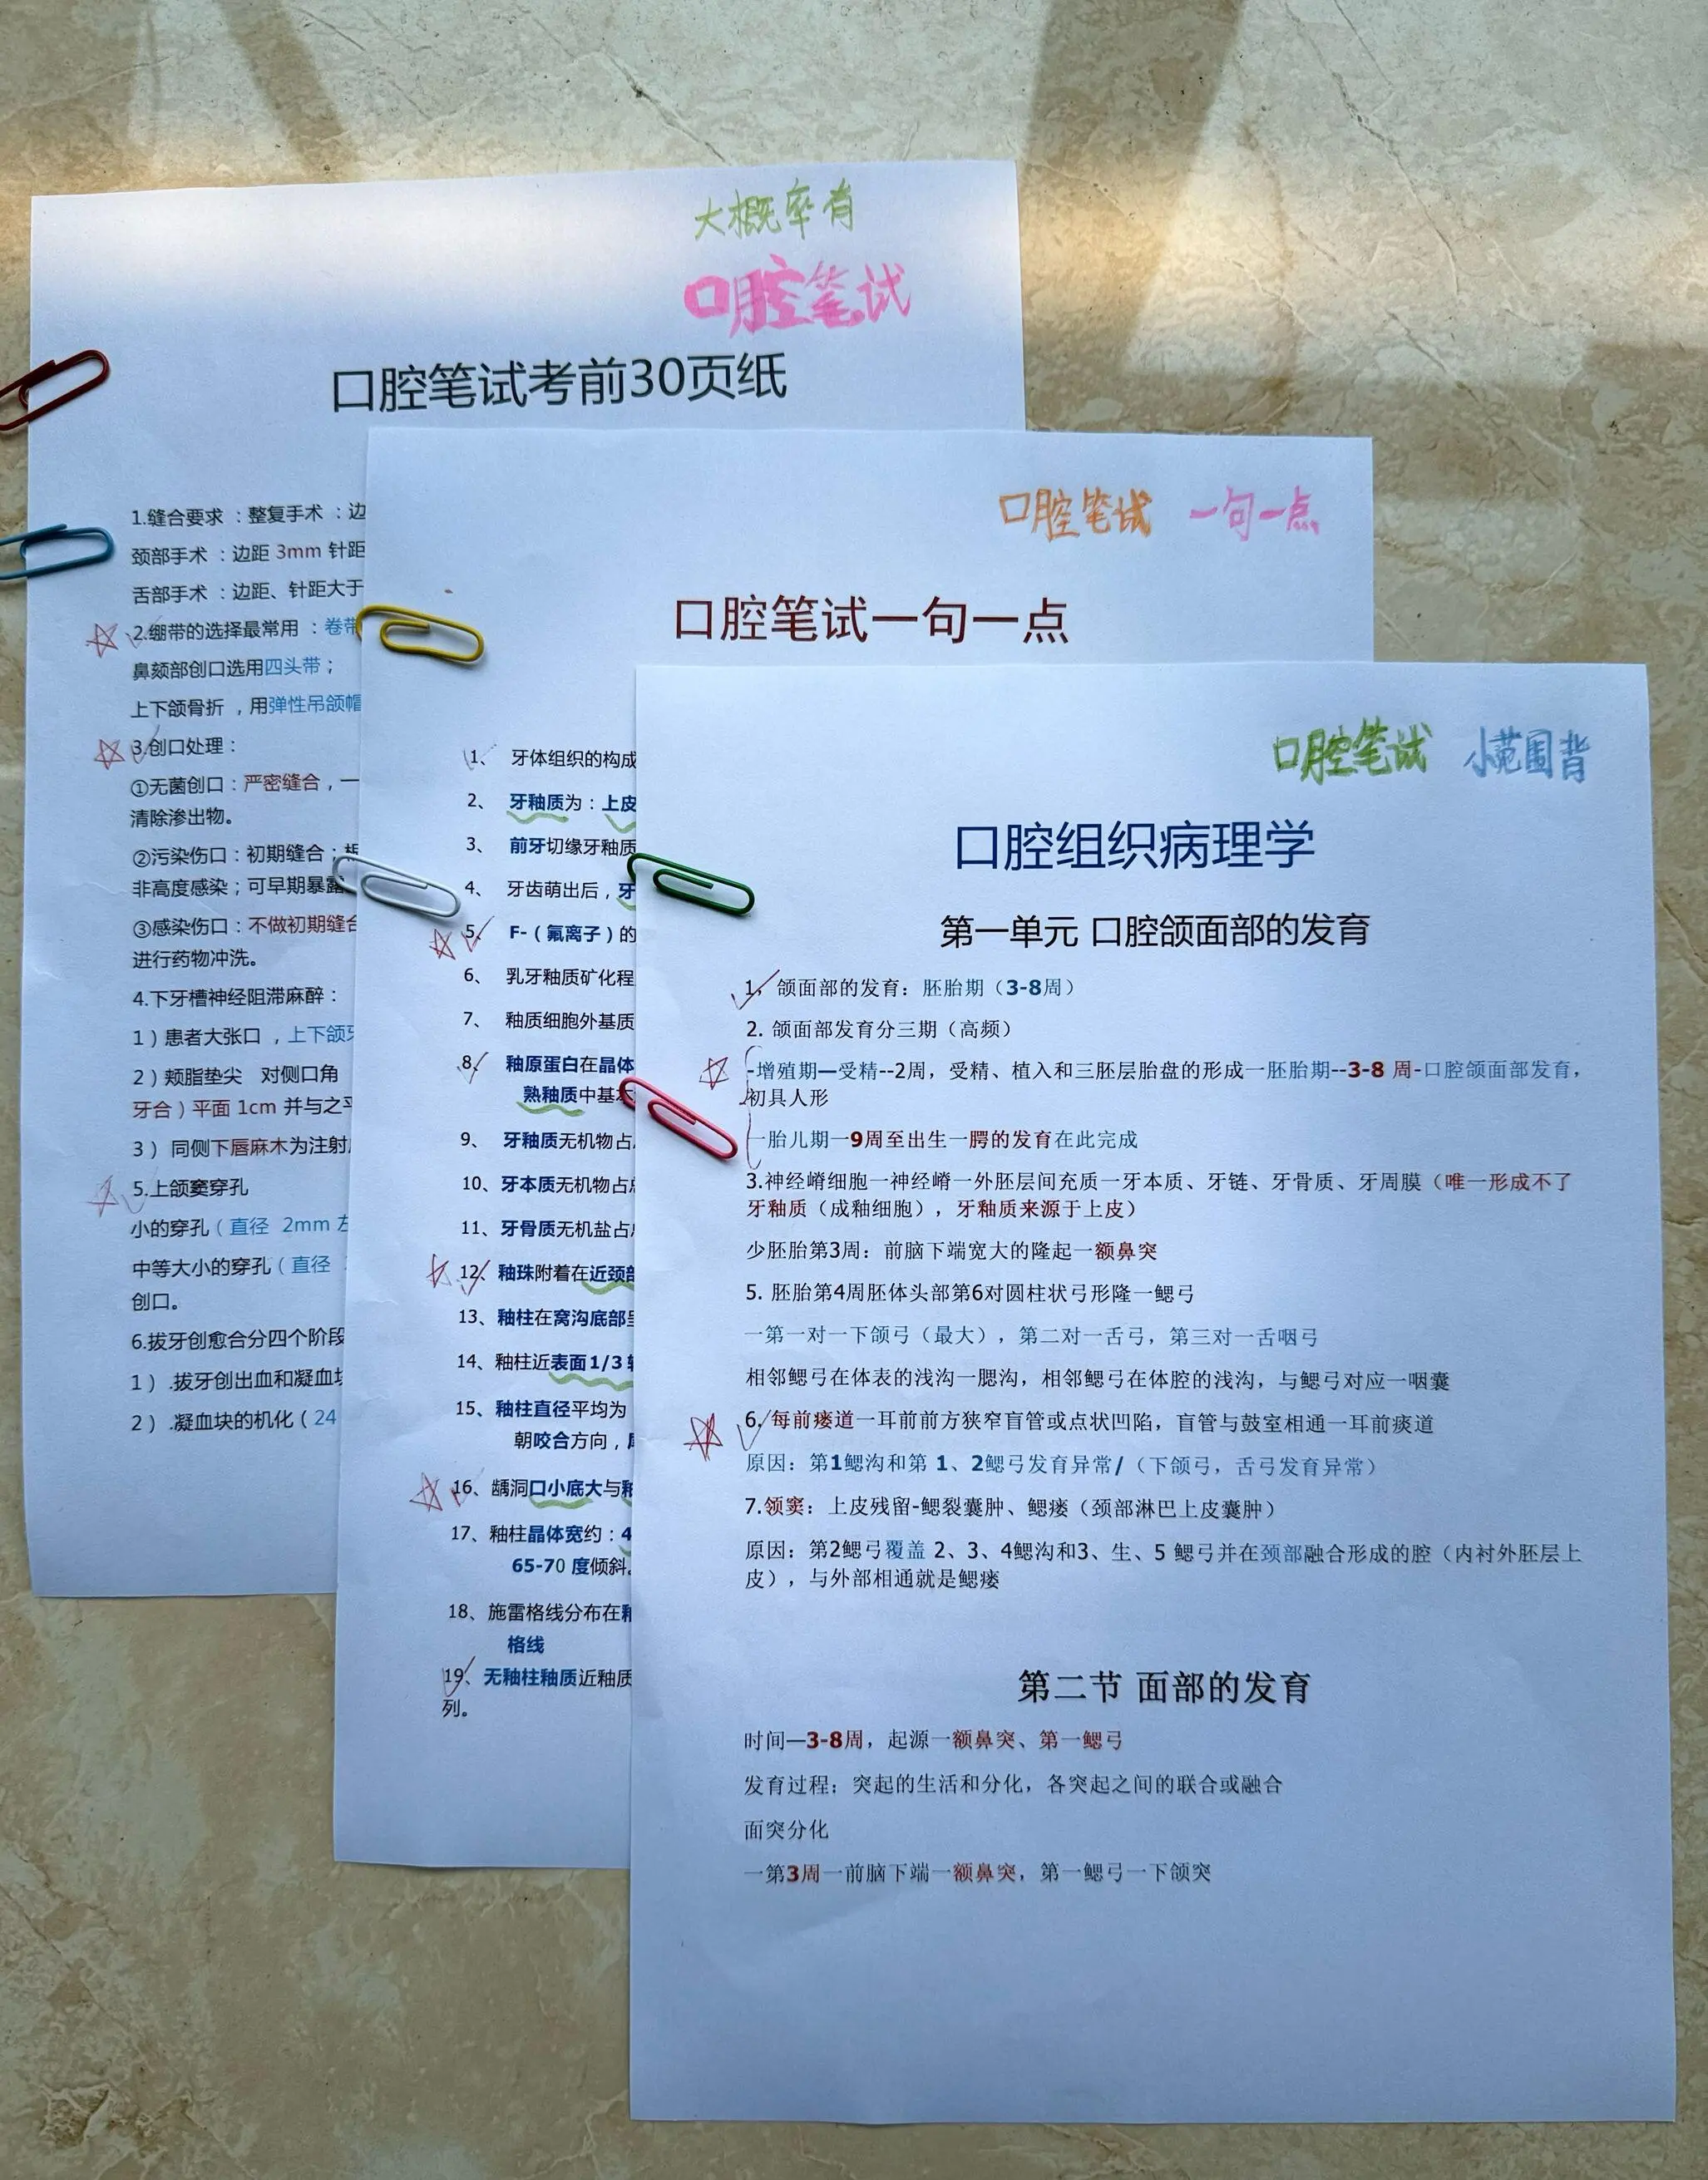 大概率有
口腔笔试
口腔笔试考前30页纸
1.缝合要求：整复手术：边
颈部手术：边距 3mm 针距
舌部手术：边距、针距大于
2.绷带的选择最常用：卷带
鼻颏部创口选用四头带；
上下颌骨折，用弹性吊颌帽
3.创口处理：
①无菌创口：严密缝合，一
清除渗出物。
②污染伤口：初期缝合；
非高度感染；可早期暴露
③感染伤口：不做初期缝合
进行药物冲洗。
4.下牙槽神经阻滞麻醉：
1）患者大张口，上下颌牙
2）颊脂垫尖 对侧口角
牙合）平面 1cm 并与之平
3） 同侧下唇麻木为注射
5.上颌窦穿孔
小的穿孔（直径 2mm 左
中等大小的穿孔（直径
创口。
6.拔牙创愈合分四个阶段
1） .拔牙创出血和凝血块
2） .凝血块的机化（24
口腔笔试 一句一点
口腔笔试一句一点
1、 牙体组织的构成
2、 牙釉质为：上皮
3、 前牙切缘牙釉质
4、 牙齿萌出后，牙
5、 F-（氟离子）的
6、 乳牙釉质矿化程
7、 釉质细胞外基质
8、 釉原蛋白在晶体
熟釉质中基本
9、 牙釉质无机物占
10、牙本质无机物占总
11、牙骨质无机盐占总
12、釉珠附着在近颈部
13、釉柱在窝沟底部呈
14、釉柱近表面1/3 较
15、釉柱直径平均为
朝咬合方向，
16、龋洞口小底大与釉
17、釉柱晶体宽约：4
65-70 度倾斜。
18、施雷格线分布在釉
格线
19、无釉柱釉质近釉质
列。
口腔笔试 小范围背
口腔组织病理学
第一单元 口腔颌面部的发育
1，颌面部的发育：胚胎期（3-8周）
2. 颌面部发育分三期（高频）
-增殖期—受精--2周，受精、植入和三胚层胎盘的形成一胚胎期--3-8 周-口腔颌面部发育，
初具人形
一胎儿期一9周至出生一腭的发育在此完成
3.神经嵴细胞一神经嵴一外胚层间充质一牙本质、牙链、牙骨质、牙周膜（唯一形成不了
牙釉质（成釉细胞），牙釉质来源于上皮）
少胚胎第3周：前脑下端宽大的隆起一额鼻突
5. 胚胎第4周胚体头部第6对圆柱状弓形隆一鳃弓
一第一对一下颌弓（最大），第二对一舌弓，第三对一舌咽弓
相邻鳃弓在体表的浅沟一腮沟，相邻鳃弓在体腔的浅沟，与鳃弓对应一咽囊
6. 每前瘘道一耳前前方狭窄盲管或点状凹陷，盲管与鼓室相通一耳前痰道
原因：第1鳃沟和第 1、2鳃弓发育异常/（下颌弓，舌弓发育异常）
7.领窦：上皮残留-鳃裂囊肿、鳃瘘（颈部淋巴上皮囊肿）
原因：第2鳃弓覆盖 2、3、4鳃沟和3、生、5 鳃弓并在颈部融合形成的腔（内衬外胚层上
皮），与外部相通就是鳃瘘
第二节 面部的发育
时间—3-8周，起源一额鼻突、第一鳃弓
发育过程；突起的生活和分化，各突起之间的联合或融合
面突分化
一第3周一前脑下端一额鼻突，第一鳃弓一下颌突